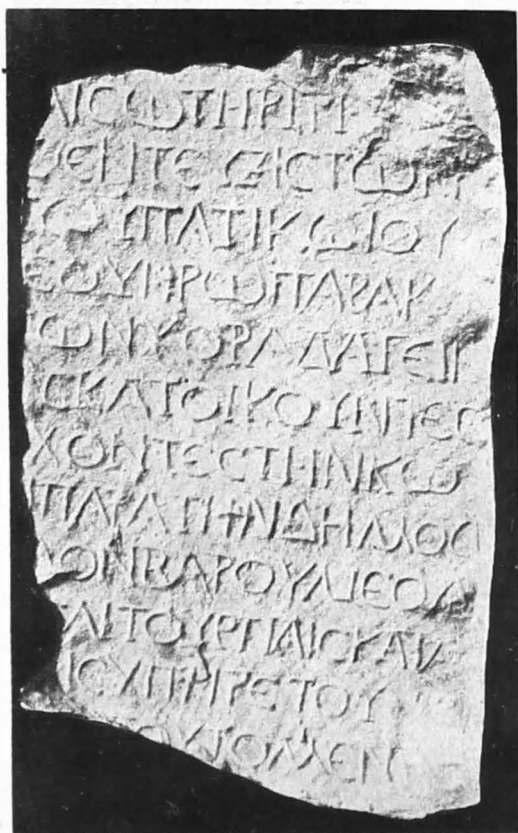 ΙϹΩΤΗΡΙΤΙ
ΕΝΤΕ ΙϹΤΩ
ΥΠΑΤΙΚΩΙΟΥ
ΕΟΥΗΡΩΠΑΡΑΚ
ΩΝΧΟΡΑ ΑΓΕΙ
ϹΚΑΤΟΙΚΟΥΝΤΕϹ
ΧΟΝΤΕϹΤΗΝΚΩ
ΠΑΡΑΤΗΝΔΗΜΟϹ
ΟΝΒΑΡΟΥΜΕΘΑ
ΛΙΤΟΥΡΓΙΑΙϹΚΑΙΑ
ΙϹΥΠΗΡΕΤΟΥ
ΟΥΤΟΜΕΝ